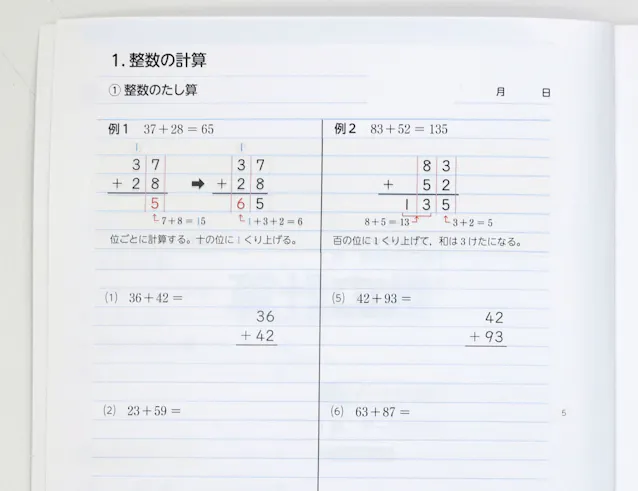 1. 整数の計算
① 整数のたし算
月 日
例1 37+28=65
1 1
3 7 3 7
+ 2 8 ➡ + 2 8
5 6 5
7+8=15 1+3+2=6
位ごとに計算する。十の位に1くり上げる。
例2 83+52=135
8 3
+ 5 2
1 3 5
8+5=13 3+2=5
百の位に1くり上げて、和は3けたになる。
(1) 36+42=
36
+ 42
(2) 23+59=
(5) 42+93=
42
+ 93
(6) 63+87=
5